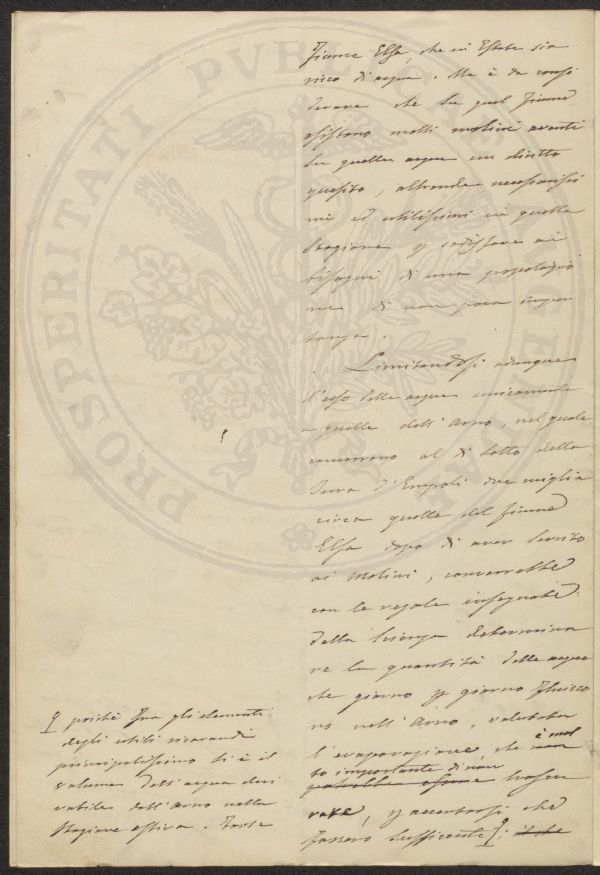 fiume Elsa, che in Estate sia
ricco di acque. Ma è da consi
derare che su quel fiume
esistono molti molini aventi
su quelle acque un diritto
quesito, altronde necessarissi
mi ed utilissimi in quella
Stagione p sodisfare ai
bisogni di una popolazio
ne di non poca impor
tanza.
Limitandosi adunque
l'uso delle acque unicamente
a quelle dell'Arno, nel quale
concorrono al di sotto della
Terra d'Empoli due miglia
circa quelle del fiume
Elsa dopo di aver servito
ai Molini, converrebbe
con le regole insegnate
dalla Scienza determina
re la quantità delle acque
che giorno p giorno fluisco
no nell'Arno, valutata
l'evaporazione che è mol
to importante di non
potrebbe trascu
rare, p accertarsi che
fossero sufficienti; il che
poichè fra gli elementi
degli utili ricavandi
principalissimo si è il
volume dell'acqua deri
vabile dall'Arno nella
Stagione estiva. Forse
PROSPERITATI PVBLICAE AVGENDAE